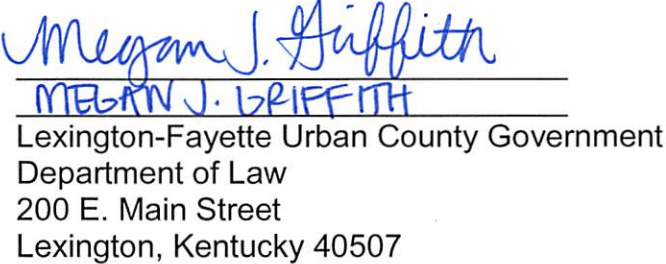 Megan J. Griffith
MEGAN J. GRIFFITH
Lexington-Fayette Urban County Government
Department of Law
200 E. Main Street
Lexington, Kentucky 40507